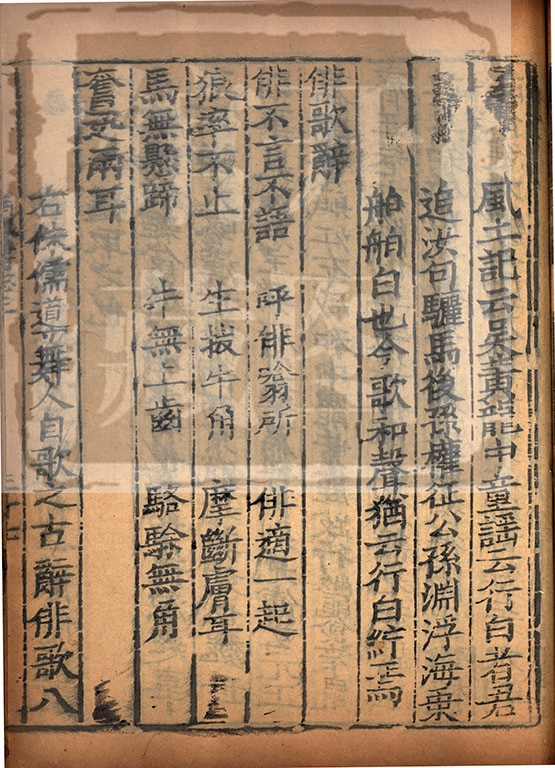 風土記云吳黃龍中童謠云行白者君
追汝句驪馬後孫權征公孫淵浮海乗
舶舶白也今歌和聲猶云行白紵焉
俳歌辭
俳不言不語 呼俳翕所 俳適一起
狼率不止 生拔牛角 摩斷膚耳
馬無懸蹄 牛無上齒 駱駞無角
奮迅兩耳
右侏儒導舞人自歌之古辭俳歌八